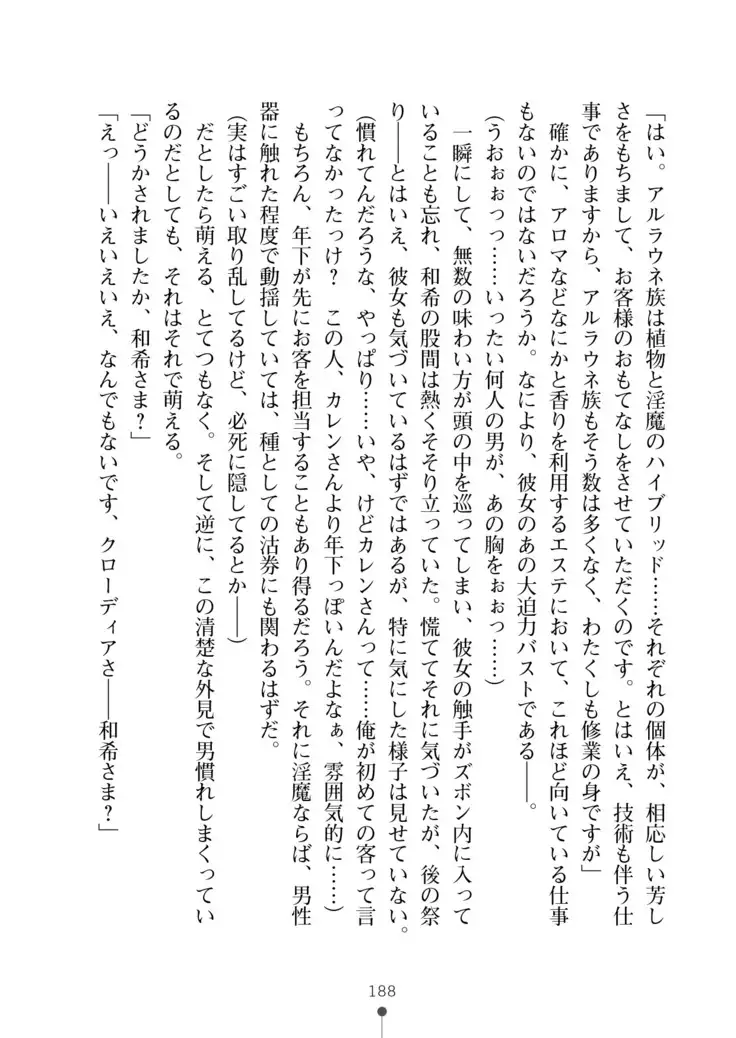 「はい。アルラウネ族は植物と淫魔のハイブリッド……それぞれの個体が、相応しい芳し
さをもちまして、お客様のおもてなしをさせていただくのです。とはいえ、技術も伴う仕
事でありますから、アルラウネ族もそう数は多くなく、わたくしも修業の身ですが」
確かに、アロマなどなにかと香りを利用するエステにおいて、これほど向いている仕事
もないのではないだろうか。なにより、彼女のあの大迫力バストである――。
(うおぉぉっっ……いったい何人の男が、あの胸をぉぉっ……)
一瞬にして、無数の味わい方が頭の中を巡ってしまい、彼女の触手がズボン内に入って
いることも忘れ、和希の股間は熱くそそり立っていた。慌ててそれに気づいたが、後の祭
り――とはいえ、彼女も気づいているはずではあるが、特に気にした様子は見せていない。
(慣れてんだろうな、やっぱり……いや、けどカレンさんって……俺が初めての客って言
ってなかったっけ? この人、カレンさんより年下っぽいんだよなぁ、雰囲気的に……)
もちろん、年下が先にお客を担当することもあり得るだろう。それに淫魔ならば、男性
器に触れた程度で動揺していては、種としての沽券にも関わるはずだ。
(実はすごい取り乱してるけど、必死に隠してるとか――)
だとしたら萌える、とてつもなく。そして逆に、この清楚な外見で男慣れしまくってい
るのだとしても、それはそれで萌える。
「どうかされましたか、和希さま?」
「えっ――いえいえいえ、なんでもないです、クローディアさ――和希さま?」
188